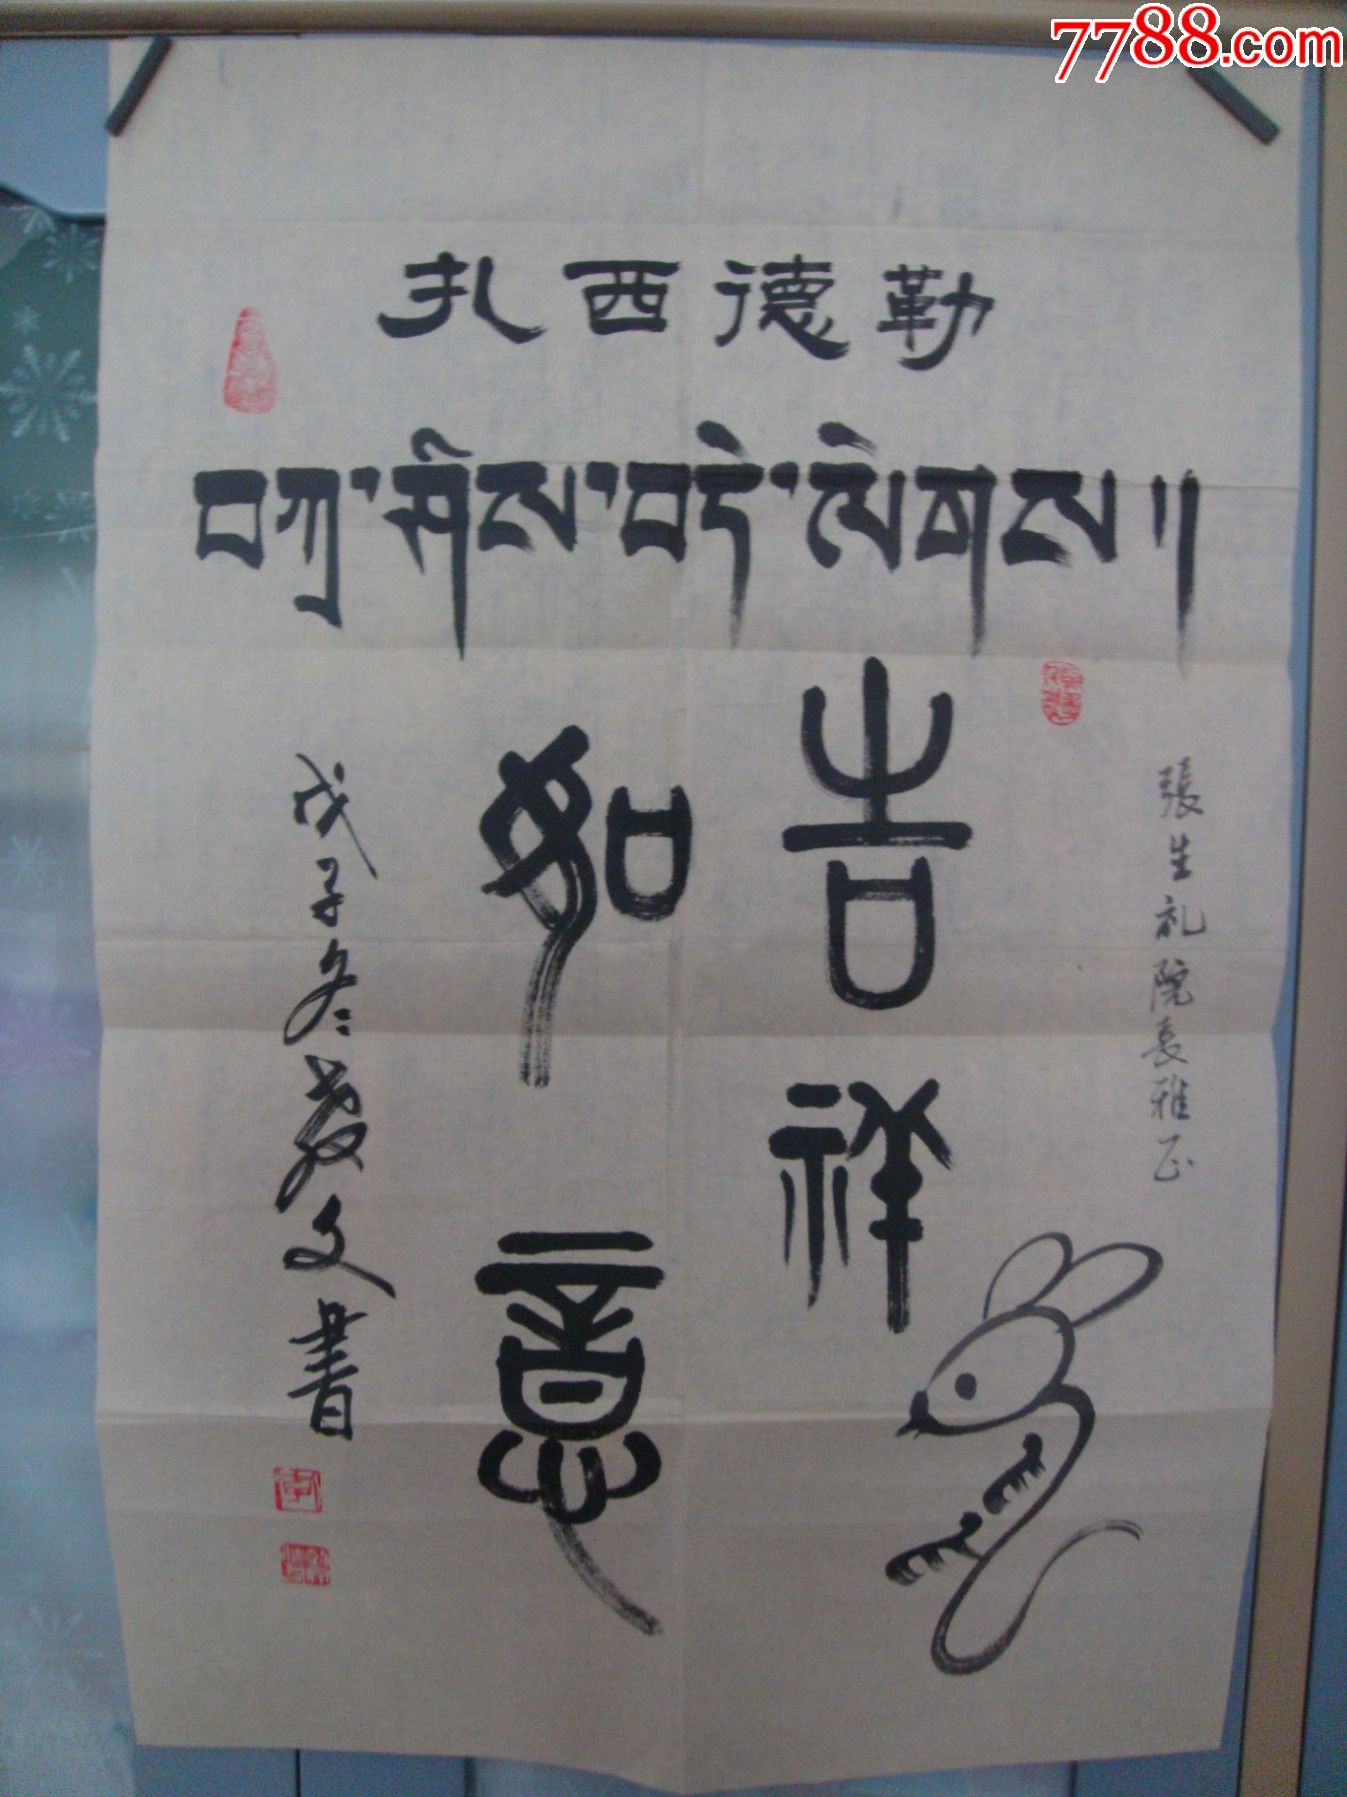 7788.com
扎西德勒
བཀྲ་ཤིས་བདེ་ལེགས།།
張生礼院長雅正
吉祥
如意
戊子冬教文書